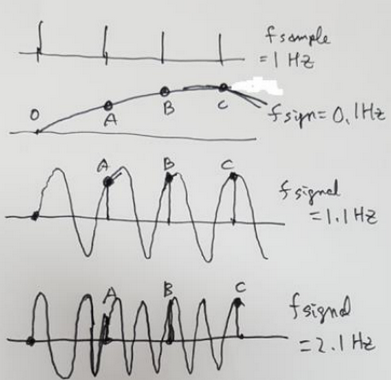 f sample
= 1 Hz
O
A
B
C
f sign = 0.1Hz
A
B
C
f signal
= 1.1Hz
A
B
C
f signal
= 2.1Hz